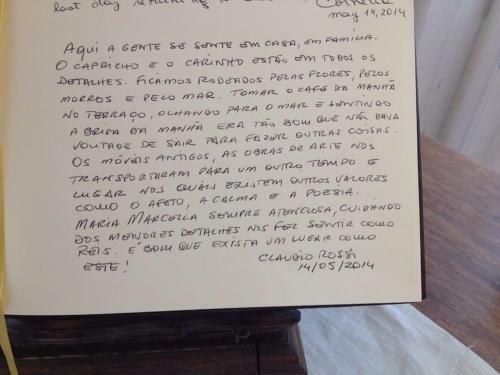 last day
may 14, 2014
AQUI A GENTE SE SENTE EM CASA, EM FAMÍLIA.
O CAPRICHO E O CARINHO ESTÃO EM TODOS OS
DETALHES. FICAMOS RODEADOS PELAS FLORES, PELOS
MORROS E PELO MAR. TOMAR O CAFÉ DA MANHÃ
NO TERRAÇO, OLHANDO PARA O MAR E SENTINDO
A BRISA DA MANHÃ ERA TÃO BOM QUE NÃO DAVA
VONTADE DE SAIR PARA FAZER OUTRAS COISAS.
OS MÓVEIS ANTIGOS, AS OBRAS DE ARTE NOS
TRANSPORTARAM PARA UM OUTRO TEMPO E
LUGAR NOS QUAIS EXISTEM OUTROS VALORES
COMO O AFETO, A CALMA E A POESIA.
MARIA MARCELLA SEMPRE ATENCIOSA, CUIDANDO
DOS MENORES DETALHES NOS FEZ SENTIR COMO
REIS. É BOM QUE EXISTA UM LUGAR COMO
ESTE!
CLAUDIO ROSSI
14/05/2014